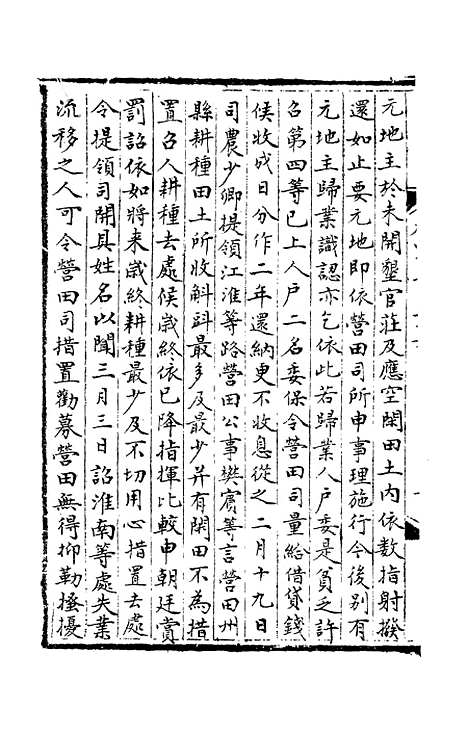 元地主於未開墾官荘及應空閑田土内依數指射撥
還如止要元地即依營田司所申事理施行今後别有
元地主歸業識認亦乞依此若歸業人户委是貧乏許
召第四等已上人户二名委保令營田司量給借貸錢
候收成日分作二年還納更不收息從之二月十九日
司農少卿提領江淮等路營田公事樊賓等言營田州
縣耕種田土所收斛㪷最多及最少并有閑田不為措
置召人耕種去處候歳終依已降指揮比較申朝廷賞
罰詔依如將来歳終耕種最少及不切用心措置去處
令提領司開具姓名以聞三月三日詔淮南等處失業
流移之人可令營田司措置勸募營田無得抑勒搔擾